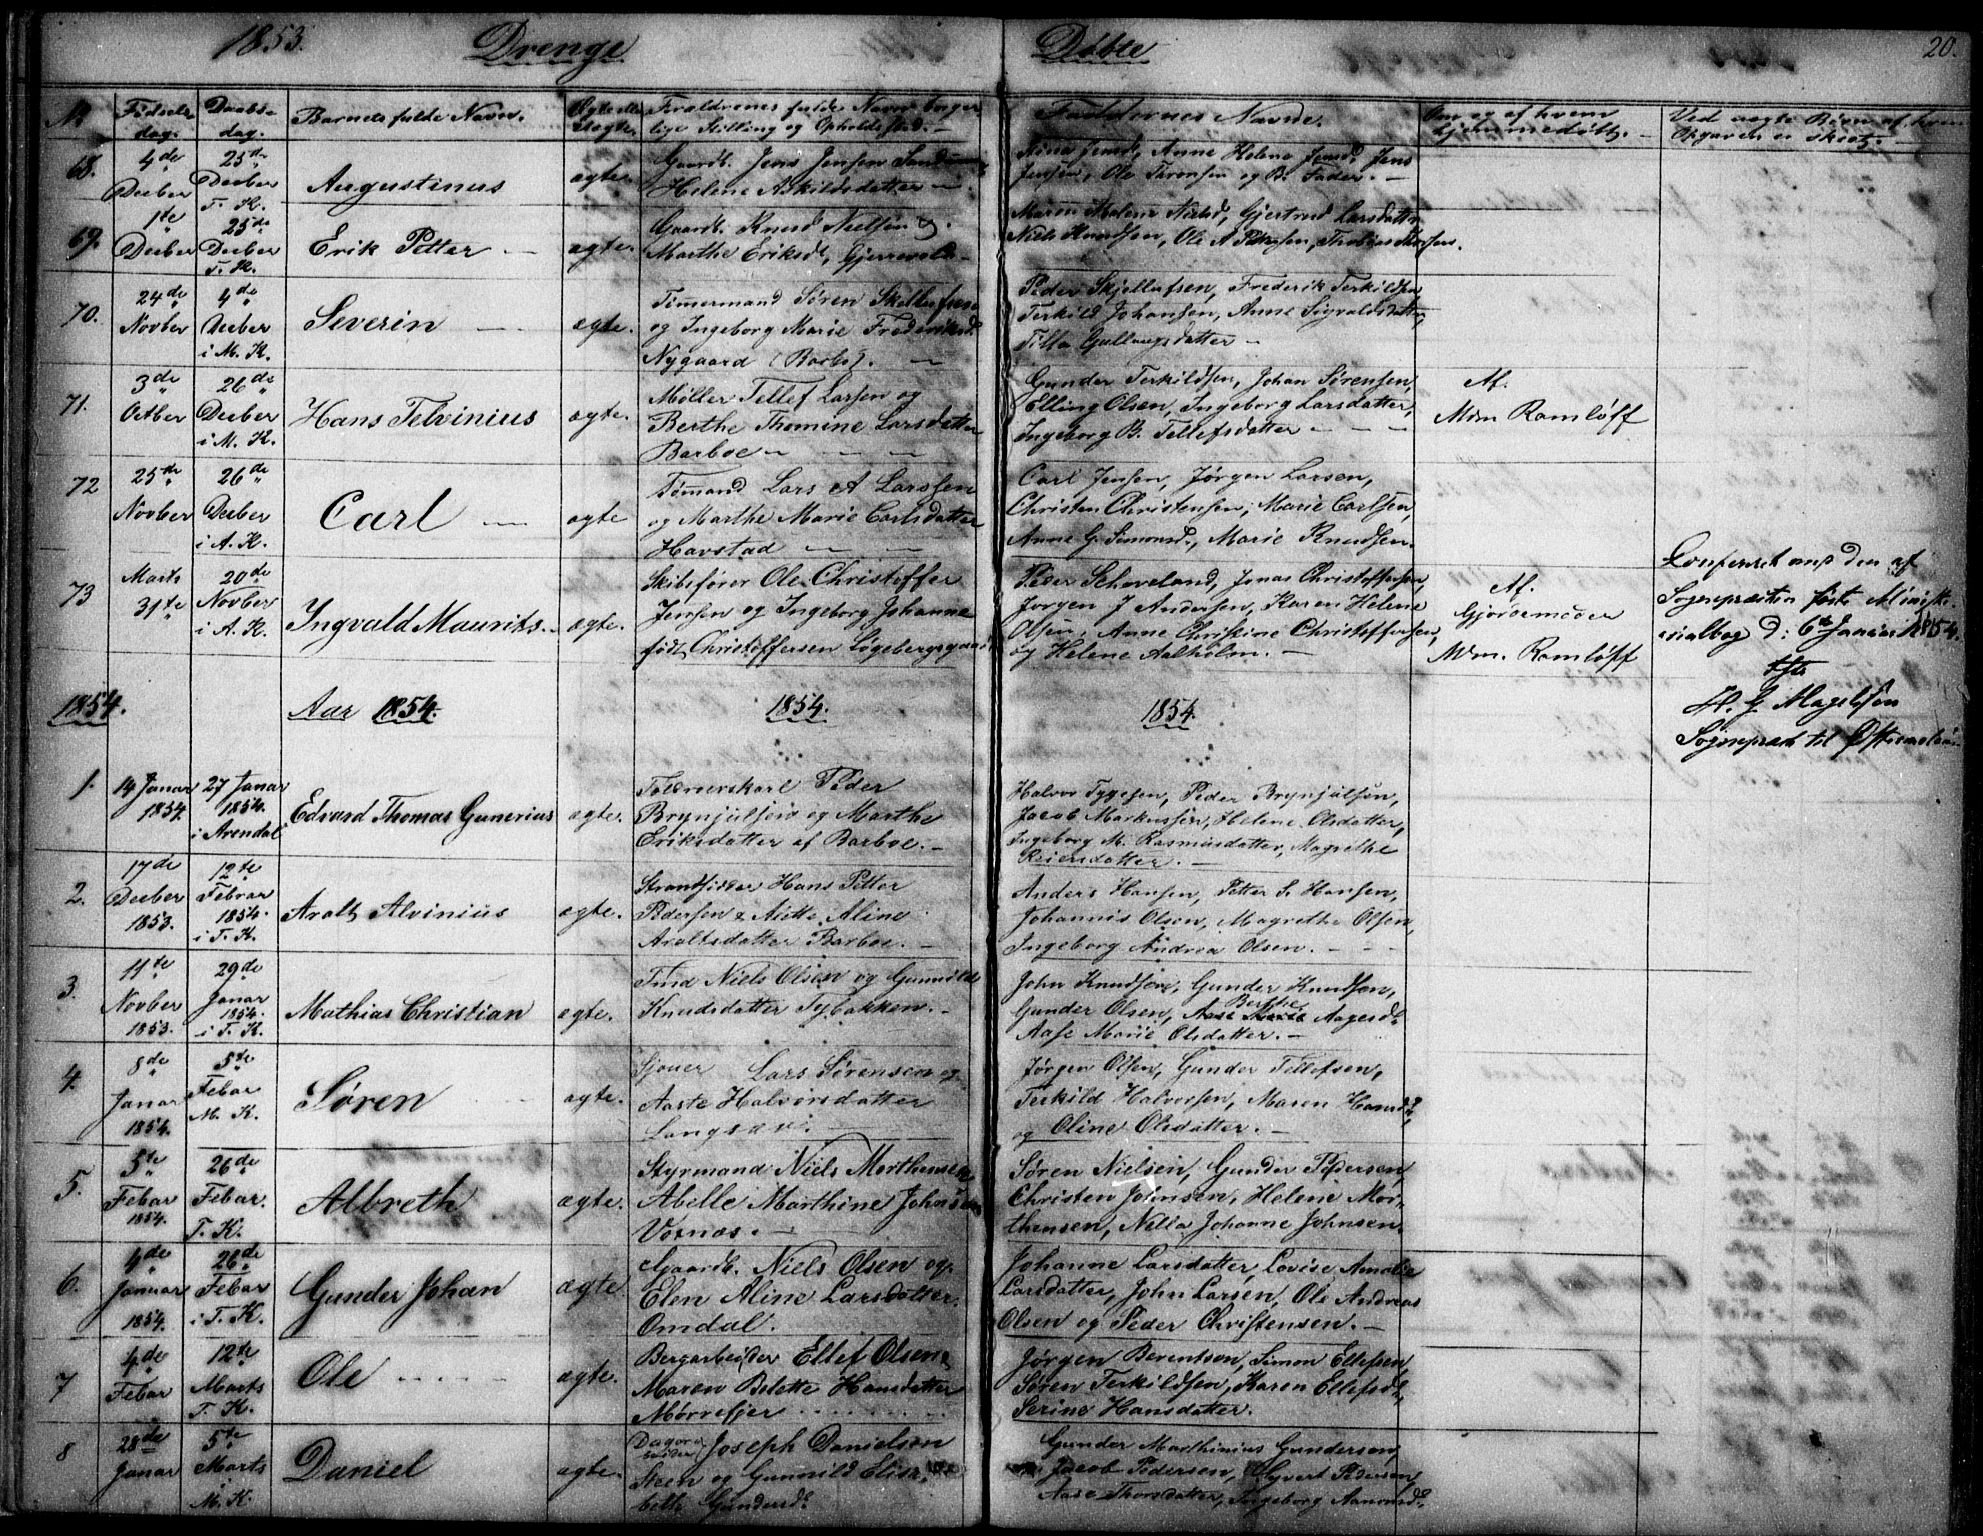 1853. Drenge Døbte 20.
No. Fødsels- dag. Daabs- dag. Barnets fulde Navn. Ægte eller Uægte. Forældrenes fulde Navn, borger-
lige Stilling og Opholdssted. Faddernes Navne. Om og af hvem hjemmedøbt. Ved uægte Børn af hvem
Opgaven er skeet.
68. 4de Decber 25de Decber T. K. Augustinus ægte. Gaardb. Jens Jensen
Helene Askildsdatter
Stina Jensd, Anne Helene Jensd, Jens
Jensen, Ole Terensen og B. Fader.
69. 1te Decber 25de Decber T. K. Erik Petter ægte. Gaardb. Knud Nielsen og
Marthe Eriksdt, Gjerrevold
Maren Malene Nielsd, Gjertrud Larsdatter
Niels Knudsen, Ole A Petersen, Thobias
70. 24de Novber 4de Decber i M. K. Severin ægte. Timermand Søren Skjellufsen
og Ingeborg Marie Frederiksd.
Nygaard (Barbo).
Peder Skjellufsen, Frederik Terkildsen,
Terkild Johansen, Anne Sigvaldsdatter,
Tilla Gullaugsdatter
71. 3de Octber 26de Decber i M. K. Hans Telvinius ægte. Møller Tellef Larsen og
Berthe Thomine Larsdatter
Barboe
Gunder Terkildsen, Johan Sørensen,
Elling Olsen, Ingeborg Larsdatter,
Ingeborg B. Tellefsdatter
Af.
Mdm Ramløff
72 25de Novber 26de Decber i A. K. Carl ægte Tømand Lars A Larssen
og Marthe Marie Carlsdatter
Havstad
Carl Jensen, Jørgen Larsen,
Christen Christensen, Marie Carlsen,
Anne G. Simonsd., Marie Knudsen.
73 Marts 31te 20de Novber i A. K. Ingvald Maurits. ægte. Skibsfører Ole Christoffer
Jensen og Ingeborg Johanne
født Christoffersen Løgebergsgaard
Peder Schaveland, Jonas Christoffersen,
Jørgen J Andersen, Karen Helene
Olsen, Anne Christine Christoffersen,
og Helene Aalholm.
Af.
Gjordemoder
Mdm. Ramløff
Confereret med den af
Sognepræsten førte Ministe-
rialbog d: 6te Januar 1854.
H. G. Magelssen
Sognepræst til Østremoland
1854. Aar 1854. 1854. 1854.
1. 14 Januar 1854. 27 Januar 1854. i Arendal Edvard Thomas Gunerius ægte. Toldrorskarl Peder
Brynjulsen og Marthe
Eriksdatter af Barboe.
Halvor Tygesen, Peder Brynjulsen,
Jacob Markussen, Helene Olsdatter,
Ingeborg M. Rasmusdatter, Magrethe
Reiersdatter.
2. 17de Decber 1853. 12te Febrar 1854. i T. K. Aralt Alvinius ægte. Strandsidder Hans Petter
Pedersen & Aiette Aline
Araltsdatter Barboe.
Anders Hansen, Petter S. Hansen,
Johannis Olsen, Magrethe Olsen,
Ingeborg Andrea Olsen.
3. 11te Novber 1853. 29de Januar 1854. i T. K. Mathias Christian ægte. Tmd Niels Olsen og Gunnild
Knudsdatter Tybakken.
John Knudsen, Gunder Knudsen,
Gunder Olsen, Berthe Aagesdt
Aase Marie Olsdatter.
4. 8de Januar 1854. 5te Febar M. K. Søren ægte. Sjouer Lars Sørensen og
Aaste Halvorsdatter
Langsæv.
Jørgen Olsen, Gunder Tellefsen,
Terkild Halvorsen, Maren Hansd.,
og Oline Olsdatter.
5. 5te Febar 1854. 26de Febar. T. K. Albreth ægte. Styrmand Niels Morthensen
Abelle Marthine Johnsen
Voxnæs.
Søren Nielsen, Gunder Pedersen,
Christen Johnsen, Helene Mor-
thensen, Nella Johanne Johnsen.
6. 4de Januar 1854. 26de Febar i T. K. Gunder Johan ægte Gaardb. Niels Olsen og
Elen Aline Larsdatter.
Omdal.
Johanne Larsdatter, Lovise Amalie
Larsdatter, John Larsen, Ole Andreas
Olsen og Peder Christensen.
7 4de Febar 12te Marts T. K. Ole ægte. Bergarbeider Ellef Olsen &
Maren Belette Hansdatter
Mørrefjer
Jørgen Berentson, Simon Ellefsen,
Søren Terkildsen, Karen Ellefsdt,
Serine Hansdatter.
8 28de Januar 5te Marts i M. K. Daniel ægte. Dagarbeider Joseph Danielson
Steen og Gunnild Elisa-
beth Gundersdt
Gunder Marthinius Gundersen,
Jacob Pedersen, Syvert Pedersen,
Aase Thorsdatter, Ingeborg Aanonsdt.